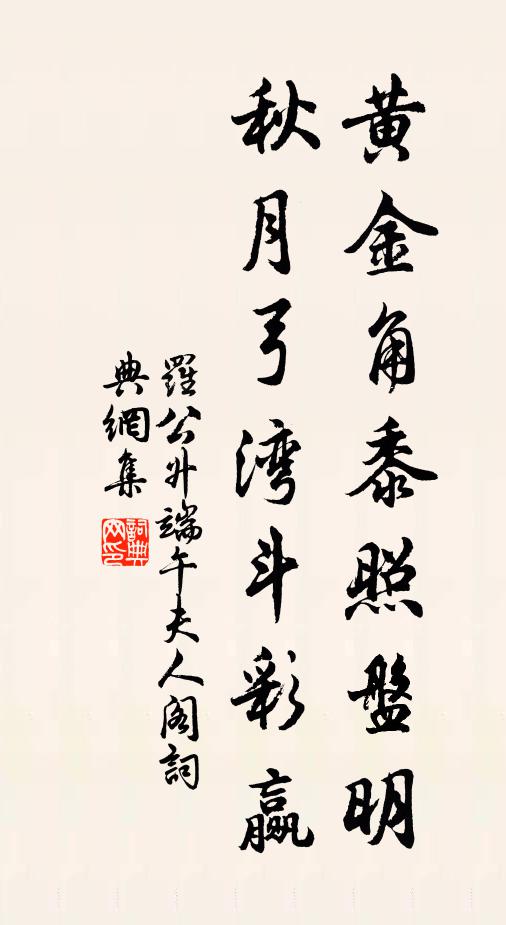 黄金角黍照盤明
秋月弓湾斗彩贏
羅公升端午夫人阁詞
典網集
詞典網印